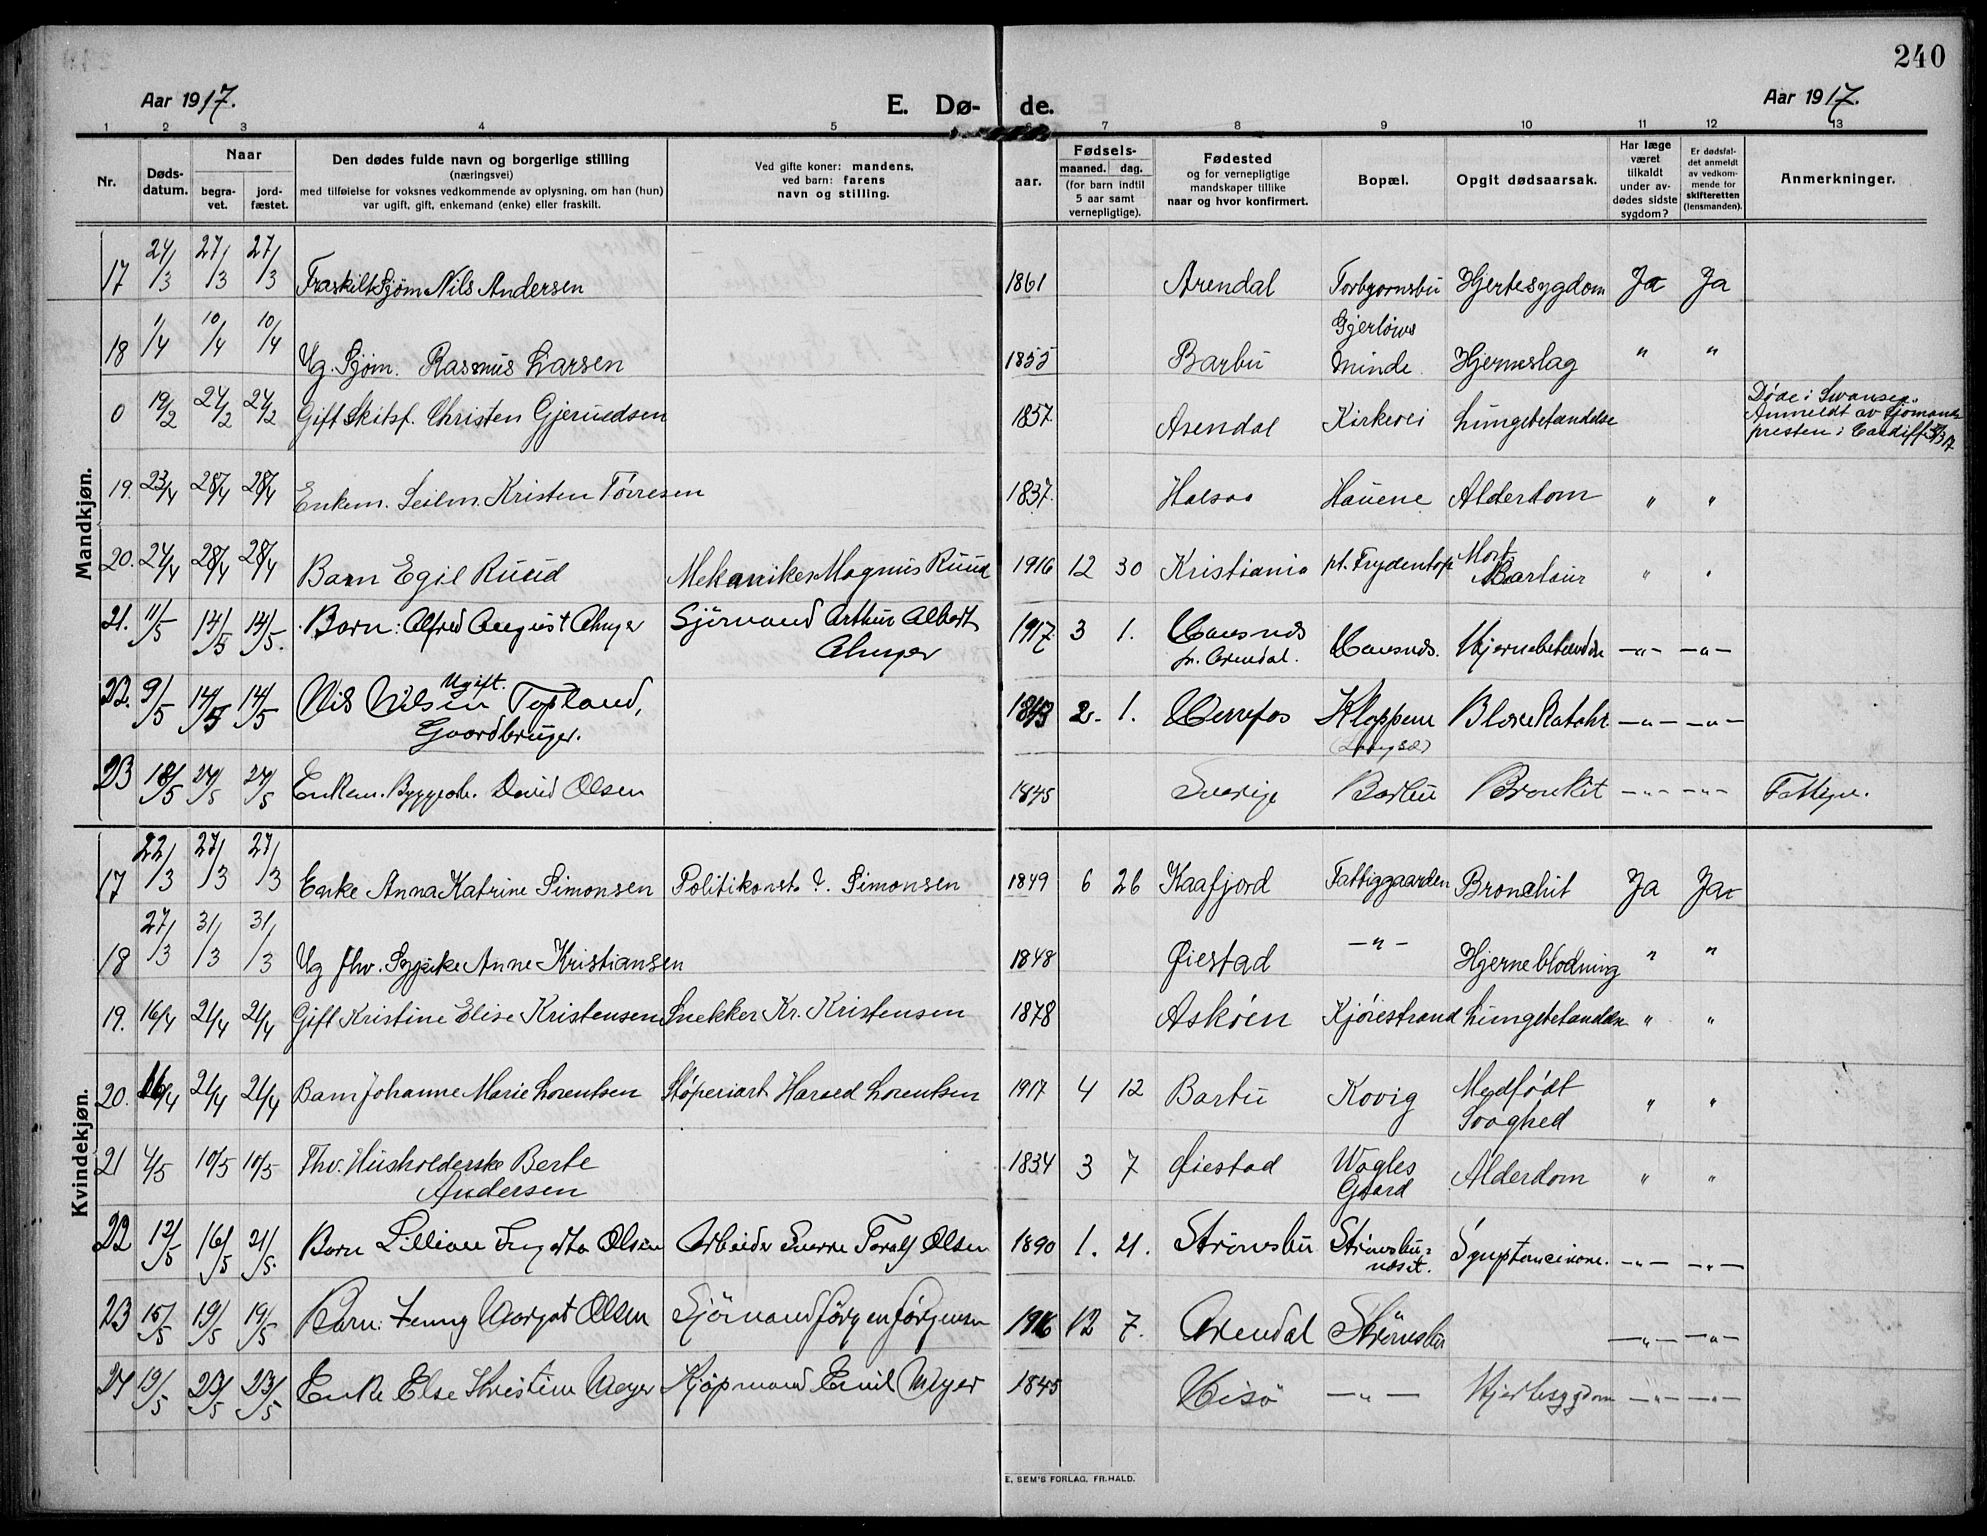 240
Aar 1917. E. Dø- de. Aar 1917.
1 2 3 4 5 6 7 8 9 10 11 12 13
Nr. Døds-datum. Naar begra-vet. jord-fæstet. Den dødes fulde navn og borgerlige stilling (næringsvei) med tilføielse for voksnes vedkommende av oplysning, om han (hun) var ugift, gift, enkemand (enke) eller fraskilt. Ved gifte koner: mandens, ved barn: farens navn og stilling. aar. Fødsels- maaned. dag. (for barn indtil 5 aar samt vernepligtige). Fødested og for vernepligtige mandskaper tillike naar og hvor konfirmert. Bopæl. Opgit dødsaarsak. Har læge været tilkaldt under av-dødes sidste sygdom? Er dødsfal-det anmeldt av vedkom-mende for skifteretten (lensmanden). Anmerkninger.
Mandkjøn.
17 24/3 27/3 27/3 Fraskilt Sjøm Nils Andersen 1861 Arendal Torbjornsbu Hjertesygdom Ja Ja
18 1/4 10/4 10/4 Ug. Sjøm. Rasmus Larsen 1855 Barbu Gjerløws Minde Hjerneslag " "
0 19/2 24/2 24/2 Gift Skibsf. Christen Gjeruldsen 1857. Arendal Kirkevei Lungebetændelse Døde i Swansea. Anmeldt av Sjømands presten i Cardiff
19. 23/4 28/4 28/4 Enkem. Seilm. Kristen Tørresen 1837. Halsaa Hauene Alderdom " "
20. 24/4 28/4 28/4 Barn Egil Ruud Mekaniker Magnus Ruud 1916 12 30 Kristiania pt. Frydentop " "
21. 11/5 14/5 14/5. Barn: Alfred August Sjømand Arthur Albert 1917. 3 1. Arendal. -"- -"-
22. 9/5 14/5 14/5 Nils Nilsen Ugift. Topland, Gaardbruger. 1843 2. 1. Herefos Kloppene -"- -"-
23 18/5 24/5 24/5 Enkem. David Olsen 1845 Sverige Barbu Bronkit -"- -"- Fattign.
Kvindekjøn.
17 22/3 27/3 27/3 Enke Anna Katrine Simonsen Politikonst. Simonsen 1849 6 26 Kaafjord Fattiggaarden Bronchit Ja Ja
18 27/3 31/3 31/3 Ug fhv. Sypike Anne Kristiansen 1848 Øiestad -"- Hjerneblødning " "
19. 16/4 21/4 21/4 Gift Kristine Elise Kristensen Snekker Kr. Kristensen 1878 Askøen Kjørestrand Lungebetændelse " "
20. 16/4 21/4 21/4 Barn Johanne Marie Lorentsen Støperiarb Harald Lorentsen 1917 4 12 Barbu Kovig Medfødt Svaghed " "
21 4/5 10/5 10/5 Fhv. Husholderske Berte Andersen 1834 3 7 Øiestad Wogles Gaard Alderdom " "
22 12/5 16/5 21/5. Barn Lillian Ingerta Olsen Arbeider Sverre Toralf Olsen 1890 1. 21. Strømsbu Strømsbu-neset. -"- -"-
23 15/5 19/5 19/5 Barn: Jenny Margot Olsen Sjømand Jørgen Jørgensen 1916 12 7. Arendal Strømsbu -"- -"-
24 19/5 23/5 23/5 Enke Else Kristine Meyer Kjøpmand Emil Meyer 1845 Hisø -"- Hjertesygdom -"- -"-
E. SEM'S FORLAG, FR.HALD.